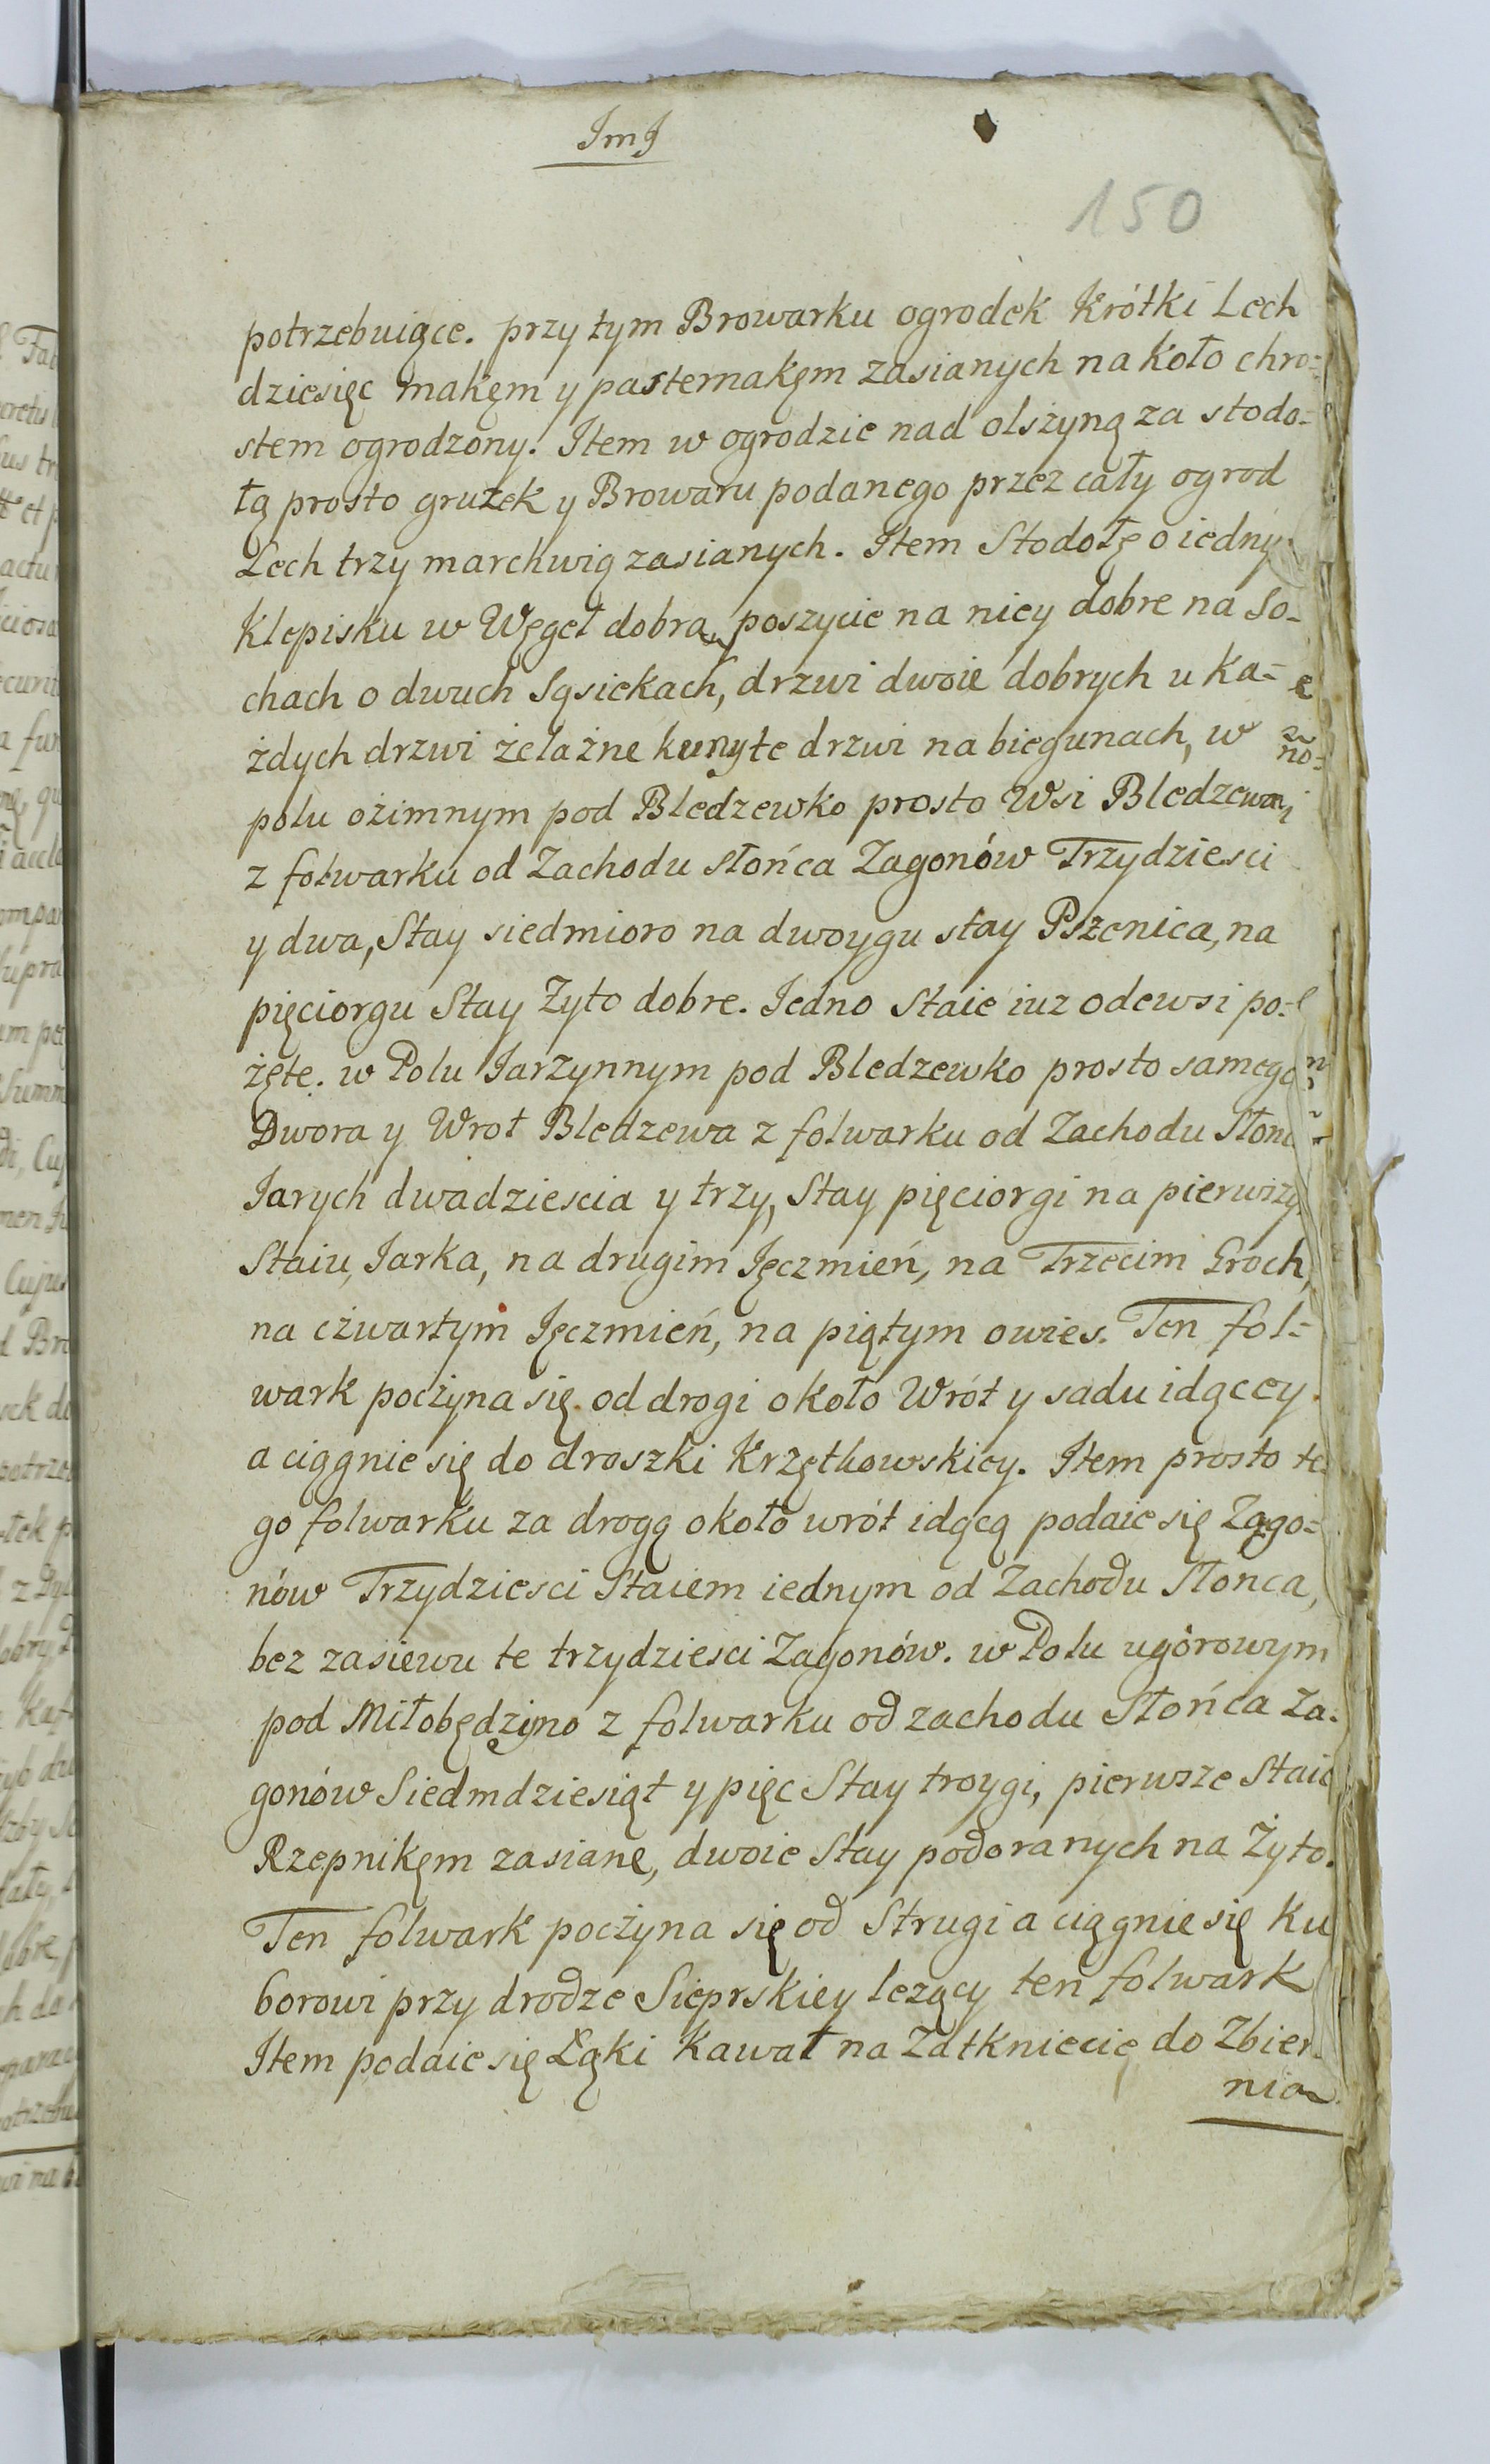 ImJ
150
potrzebuiące. przy tym Browarku ogrodek Krótki Lech
dziesięc makęm y pasternakęm zasianych na koło chro=
stem ogrodzony. Item w ogrodzie nad olszyną za stodo=
łą prosto gruzek y Browaru podanego przez cały ogrod
Lech trzy marchwią zasianych. Item Stodołę o iedny
Klepisku w Węgeł dobra, poszycie na niey dobre na So-
chach o dwuch Sąsiekach, drzwi dwoie dobrych u Ka=
żdych drzwi żelażne kunyte drzwi na biegunach, w
polu ożimnym pod Bledzewko prosto Wsi Bledzewa
z folwarku od Zachodu słońca Zagonów Trzydziesci
y dwa, Stay siedmioro na dwoygu stay Pszenica, na
pięciorgu Stay Zyto dobre. Iedno Staie iuz odewsi po=
żęte. w Polu Iarzynnym pod Bledzewko prosto samego
Dwora y Wrot Bledzewa z folwarku od Zachodu Słonc
Iarych dwadziescia y trzy, Stay pięciorgi na pierwszy
Staiu, Iarka, na drugim Ięczmień, na Trzecim Groch,
na czwartym Ięczmień, na piątym owies. Ten fol=
wark poczyna się od drogi około Wrót y sadu idącey
a ciągnie się do droszki Krzętkowskiey. Item prosto te
go folwarku za drogą około wrót idącą podaie się Zago=
nów Trzydziesci Staiem iednym od Zachodu Słonca,
bez zasiewu te trzydziesci Zagonów. w Polu ugórowym
pod Miłobędzyno z folwarku od zachodu Słońca Za-
gonów Siedmdziesiąt y pięc Stay troygi, pierwsze Staie
Rzepnikęm zasiane, dwoie Stay podoranych na Żyto.
Ten folwark poczyna się od Strugi a ciągnie się Ku
borowi przy drodze Sieprskiey lezący ten folwark
Item podaie się Łąki Kawał na Zatkniecie do Zbier
nia